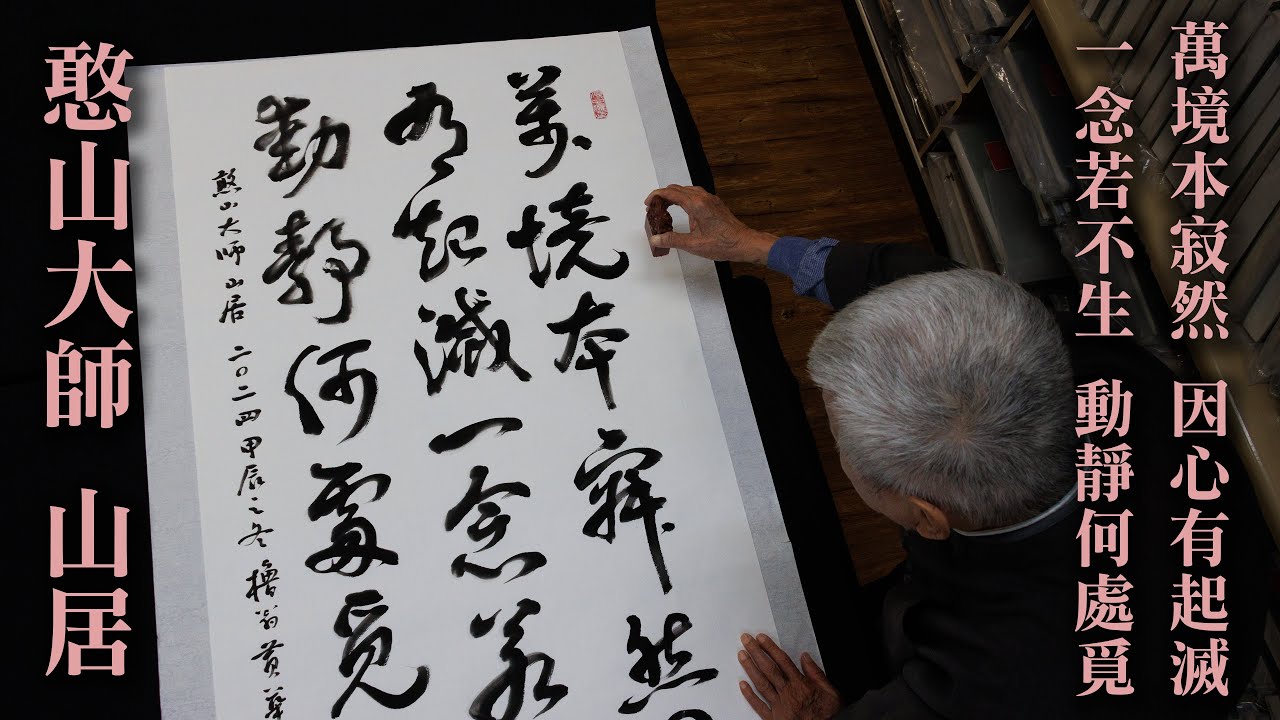 萬境本寂然 因心有起滅
一念若不生 動靜何處覓
萬境本寂然
有起滅一念若
動靜何處覓
憨山大師山居 二〇二四甲辰之冬 黃
憨山大師 山居